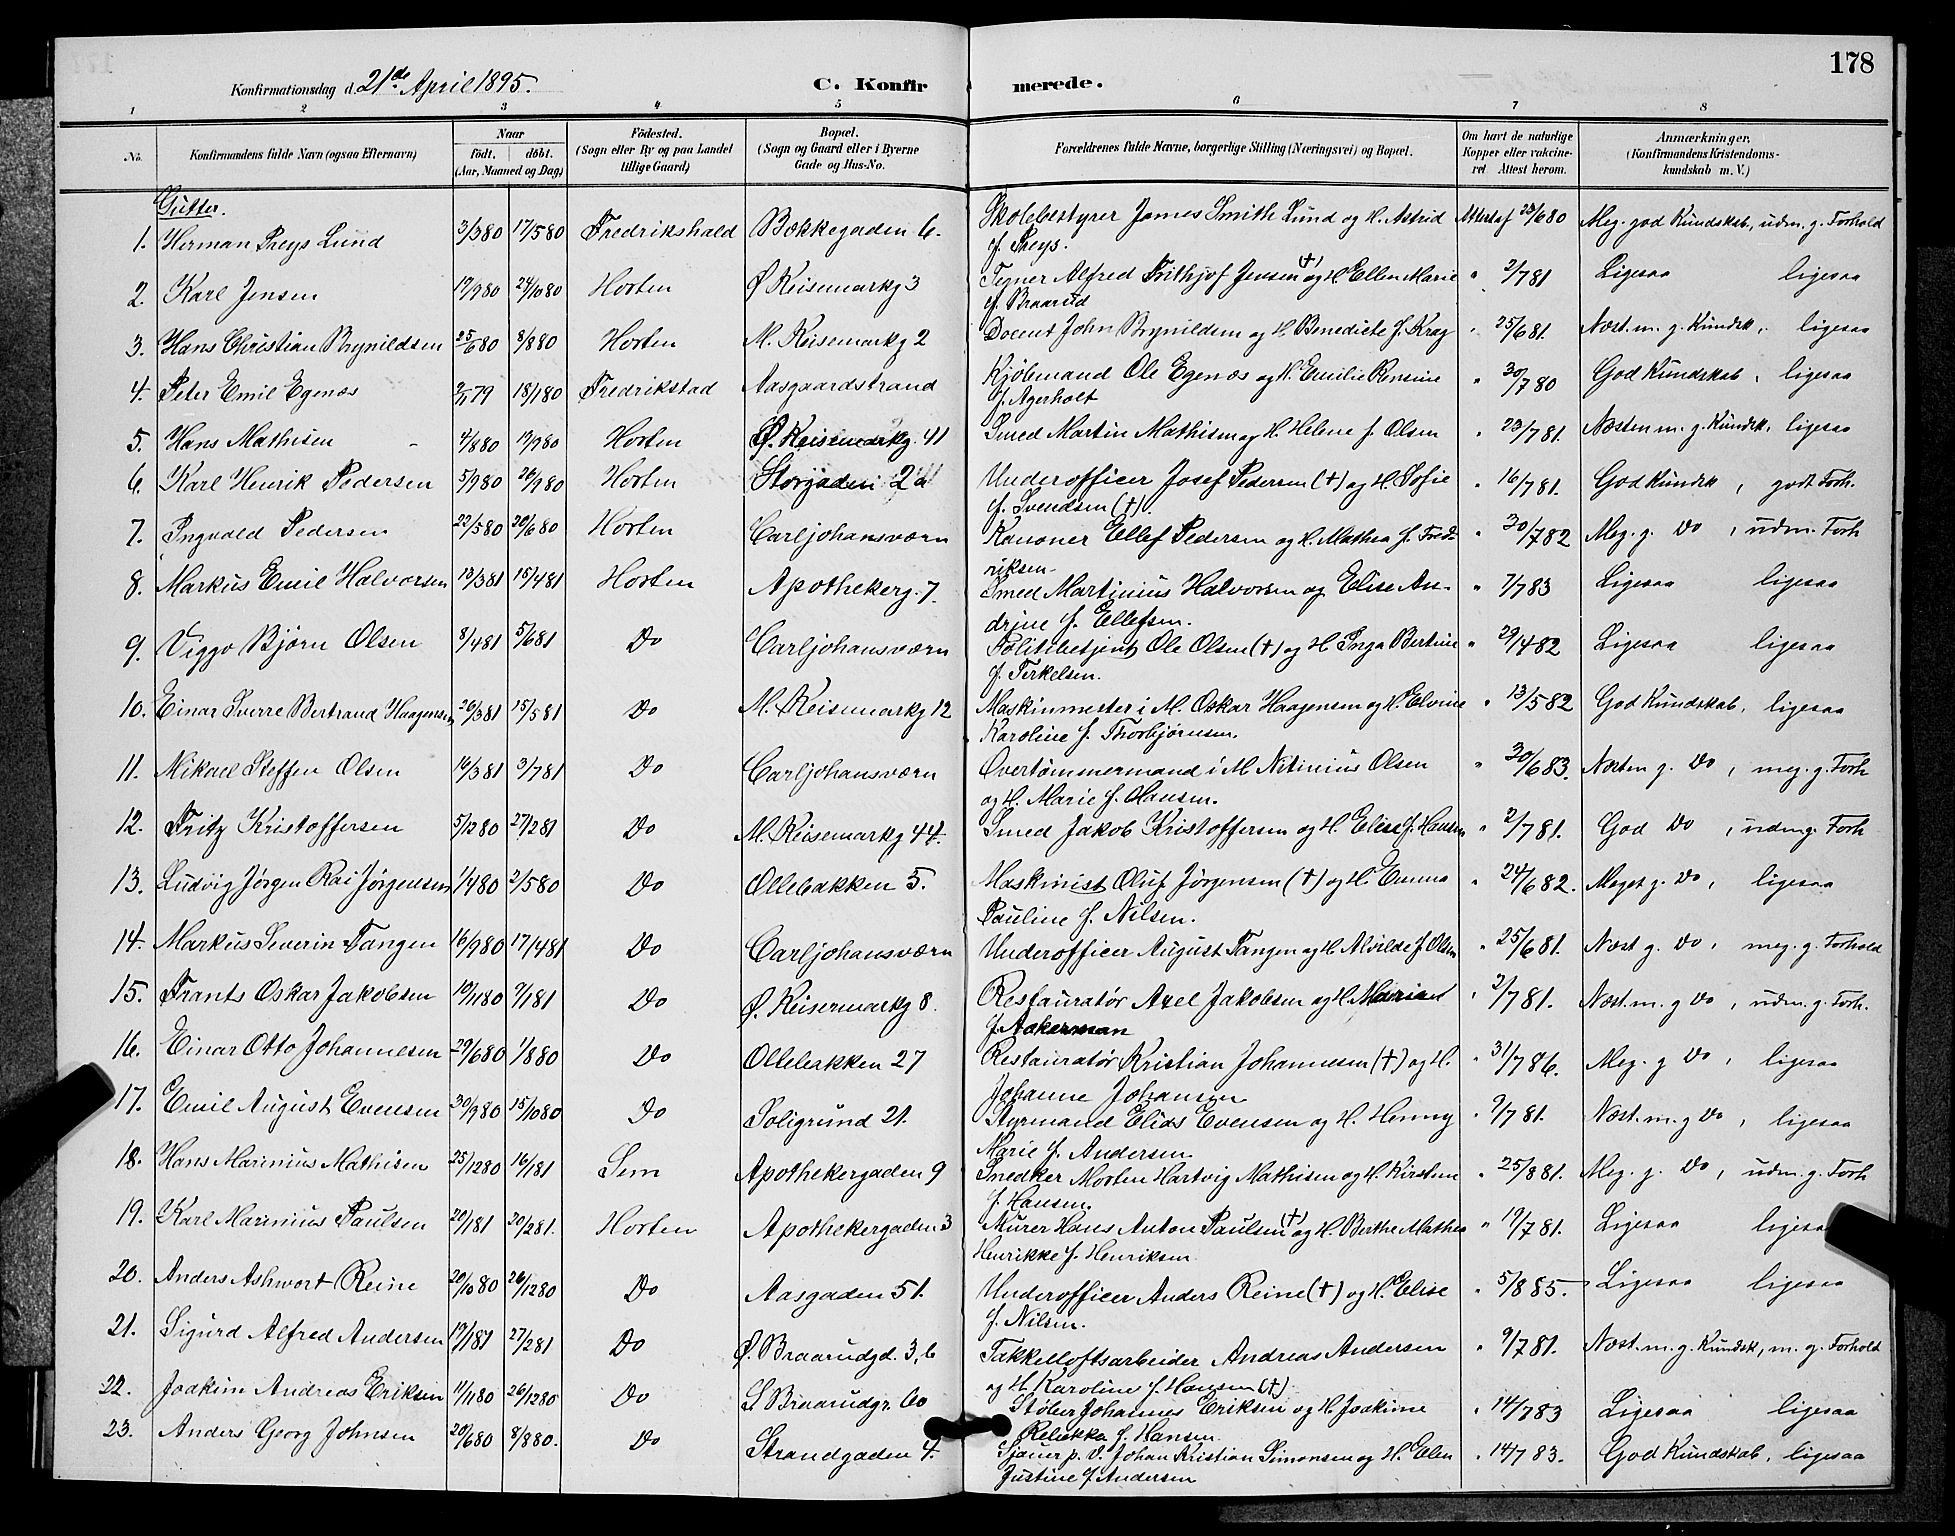 178
Konfirmationsdag d. 21de April 1895. C. Konfirmerede.
1 2 3 4 5 6 7 8
No. Konfirmandens fulde Navn (ogsaa Efternavn) Naar født. døbt. (Aar, Maaned og Dag) Fødested. (Sogn eller By og paa Landet tillige Gaard) Bopæl. (Sogn og Gaard eller i Byerne Gade og Hus-No. Forældrenes fulde Navne, borgerlige Stilling (Næringsvei) og Bopæl. Om havt de naturlige Kopper eller vakcineret Attest herom. Anmærkninger. (Konfirmandens Kristendomskundskab m. V.)
Gutter.
1. Herman Preys Lund 3/380 17/580 Fredrikshald Bakkegaden 6. Skolebestyrer James Smith Lund og H. Astrid Attest af 23/680 Meg. god Kundskab, udm. g. Forhold
f. Preys.
2. Karl Jensen 17/980 24/1080 Horten Ø Keisemarkg 3 Tegner Alfred Frithjof Jensen (†) og H. Ellen Marie " 2/781 Ligesaa ligesaa
f. Braarud
3. Hans Christian Brynildsen 25/680 8/880 Horten M. Keisemarkg 2 Docent John Brynildsen og H. Benedicte f. Krag " 25/681. Næst. m. g. Kundsk, ligesaa
4. Peter Emil Egenæs 79 18/180 Fredrikstad Aasgaardstrand Kjøbmand Ole Egenæs og H. Emilie Rensine " 30/780 God Kundskab, ligesaa
f. Agerholt
5. Hans Mathisen 4/880 19/980 Horten Ø. Keisemarkg. 41 Smed Martin Mathisen og H. Helene f. Olsen " 23/781. Næsten m. g. Kundsk, ligesaa
6. Karl Henrik Pedersen 5/980 26/980 Horten Storgaden 2 Underofficer Josef Pedersen (†) og H. Sofie " 16/781. God Kundsk, godt Forh.
f. Svendsen (†).
7. Ingvald Pedersen 22/580 20/680 Horten Carljohansværn Kanoner Ellef Pedersen og H. Mathea f. Fred- " 30/782 Meg. g. Do, udm. Forh
riksen.
8. Markus Emil Halvorsen 13/381 15/481 Horten Apothekerg. 7 Smed Martinius Halvorsen og Elise An- " 7/783 Ligesaa ligesaa
drine f. Ellefsen.
9. Viggo Bjørn Olsen 8/481 5/681 Do Carljohansværn Politibetjent Ole Olsen (†) og H. Inga Bertine " 29/482 Ligesaa ligesaa
f. Terkelsen.
10. Einar Sverre Bertrand Haagensen 26/381 15/581 Do M. Keisemarkg 12 Maskinmester i M. Oskar Haagensen og H. Elvine " 13/582 God Kundskab, ligesaa
Karoline f. Thorbjørnsen.
11. Mikael Steffen Olsen 16/381 3/781 Do Carljohansværn Overtømmermand i M Nitinius Olsen " 30/683. Næsten g. Do, meg. g. Forh
og H. Marie f. Hansen.
12. Fritz Kristoffersen 5/1280 27/281 Do M. Keisemarkg 44. Smed Jakob Kristoffersen og H Elise f. Hansen " 2/781. God Do, udm g. Forh
13. Ludvig Jørgen Rai Jørgensen 1/480 2/580 Do Ollebakken 5. Maskinist Oluf Jørgensen (†) og H. Emma " 24/682. Meget g. Do, ligesaa
Pauline f. Nilsen.
14. Markus Severin Tangen 16/980 17/481 Do Carljohansværn Underofficer August Tangen og H. Alvilde f. Olsen " 25/681. Næst g. Do, meg. g. Forhold
15. Frants Oskar Jakobsen 19/1180 9/181 Do Ø. Keisermarkg 8. Restauratør Axel Jakobsen og H. Marian " 2/781. Næst. m. g Do, udm. g. Forh.
f. Aakerman
16. Einar Otto Johannesen 29/680 1/880 Do Ollebakken 27 Restauratør Kristian Johannesen (†) og H. " 31/786. Meg. g Do, ligesaa
Johanne Johansen
17. Emil August Evensen 30/980 15/1080 Do Soligrund 21. Styrmand Elias Evensen og H. Henny " 9/781. Næst. m. g Do, ligesaa
Marie f. Andersen
18. Hans Marinius Mathisen 25/1280 16/181 Sem Apothekergaden 9 Snedker Morten Hartvig Mathisen og H. Kirstine " 25/881. Meg. g. Do, udm. g. Forh
f. Hansen.
19. Karl Marinius Paulsen 20/181 20/281. Horten Apothekergaden 3 Murer Hans Anton Paulsen (†) og H. Berthe Mathea " 19/781. Ligesaa ligesaa
Henrikke f. Henriksen
20. Anders Ashwort Reine 20/1080 26/1280 Do Aasgaden 51. Underofficer Anders Reine (†) og H. Elise " 5/885. Ligesaa ligesaa
f. Nilsen.
21. Sigurd Alfred Andersen 19/181 27/281 Do Ø. Braarudgd. 3, b Takkelloftsarbeider Andreas Andersen " 9/781. Næst. m. g. Kundsk, m. g. Forhold
og H. Karoline f. Hansen (†)
22. Joakim Andreas Eriksen 11/1180 26/1280 Do S Braarudgr. 60 Støber Johannes Eriksen og H Joakime " 14/783 Ligesaa ligesaa
Rebekka f. Hansen
23. Anders Georg Johnsen 20/680 8/880. Do Strandgaden 4. Sjauer p. V. Johan Kristian Simonsen og H. Elen " 14/783. God Kundskab, ligesaa
Justine f. Andersen